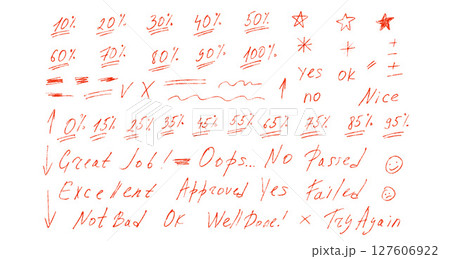 10% 20% 30% 40% 50%
60% 70% 80% 90% 100%
yes ok
V X
no Nice
0% 15% 25% 35% 45% 55% 65% 75% 85% 95%
Great Job! Oops... No Passed
Excellent Approved Yes Failed
Not Bad OK Well Done! × Try Again
PIXTA
127606922